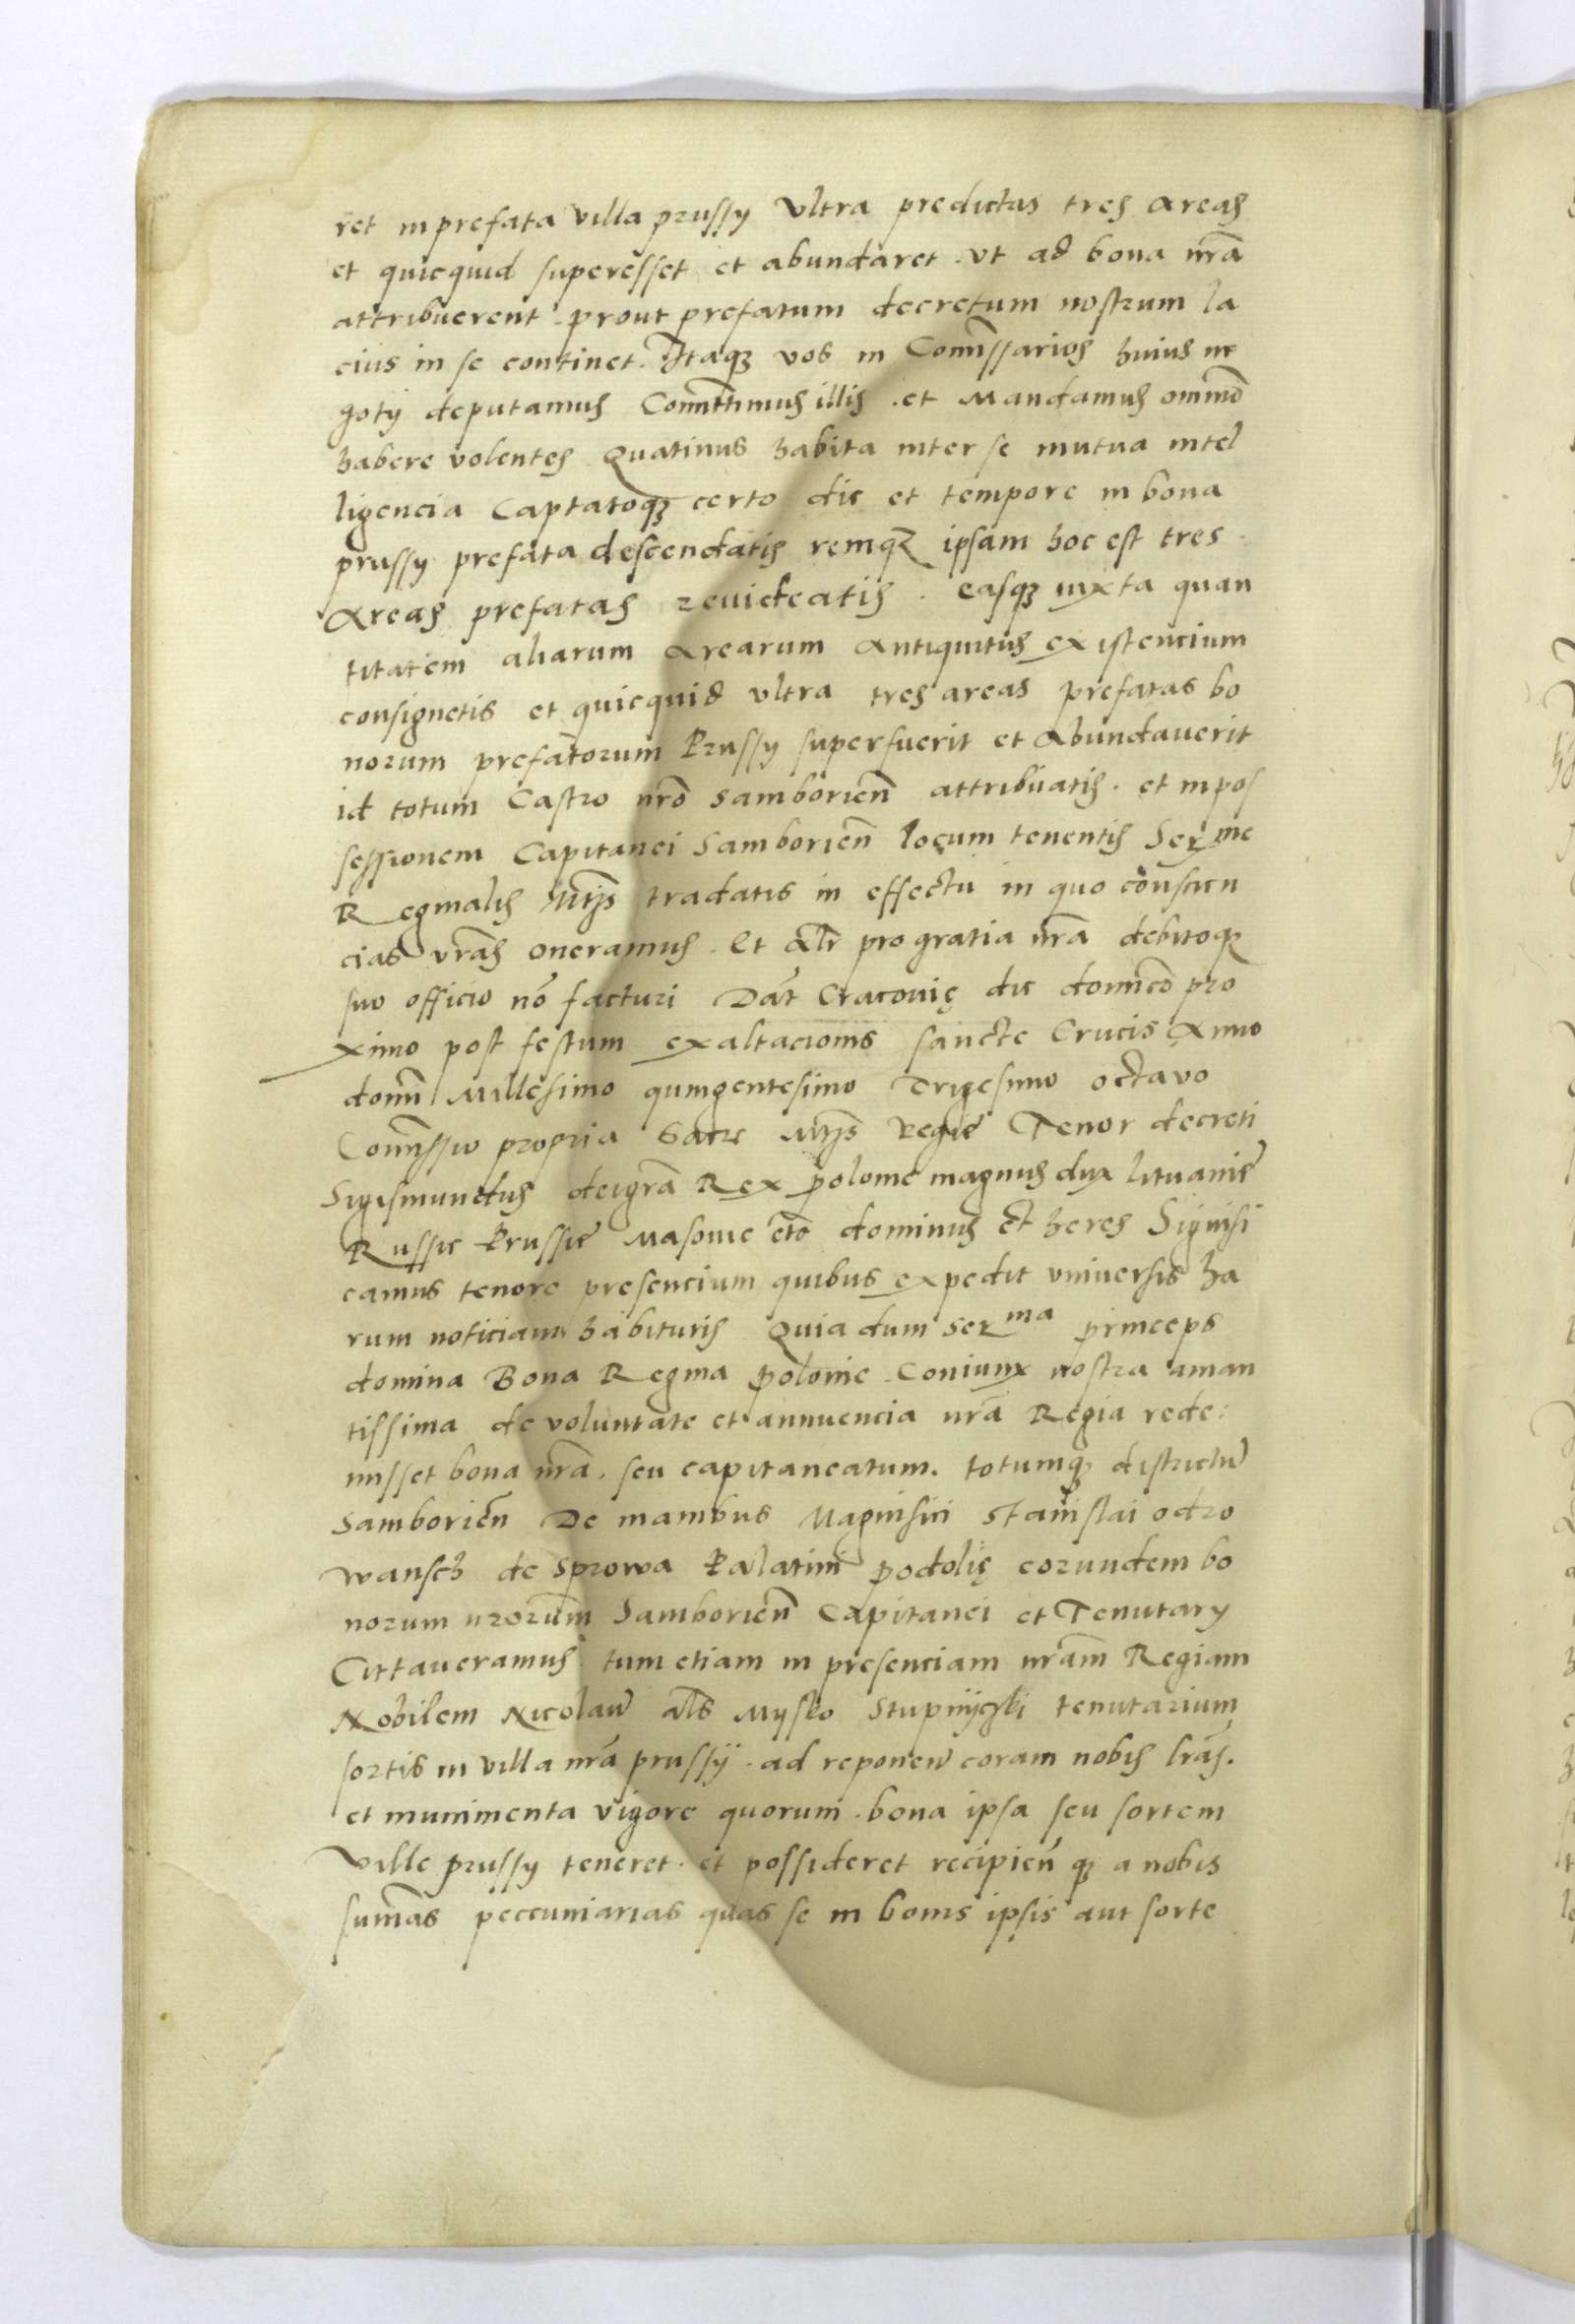 ret in prefata villa prussy vltra predictas tres areas
et quicquid superesset et abundaret . vt ad bona nrã
attribuerent . prout prefatum decretum nostrum la
cius in se continet . Itaqз vos in Com̃issarios huius ne
gotÿ deputamus Com̃ittimus illis . et Mandamus omnĩo
habere volentes Quatinus habita inter se mutua intel
ligencia Captatoqз certo die et tempore in bona
prussy prefata descendatis remqз ipsam hoc est tres
Areas prefatas reuideatis . easqз iuxta quan
titatem aliarum Arearum Antiquitus existencium
consignetis et quicquid vltra tres areas prefatas bo
norum prefatorum Prussy superfuerit et Abundauerit
id totum Castro nrõ Samborieñ attribuatis . et in pos
sessionem Capitanei Samborieñ locum tenentis Serme
Reginalis Mtỹs tradatis in effectu in quo conscien
cias vrãs oneramus . Et alr̃ pro gratia nrã debitoqз
suo officio nõ facturi Dat̃ Cracovię die domĩco pro
ximo post festum exaltacionis sancte Crucis Anno
domĩ Millesimo quingentesimo Trigesimo octavo
Com̃issio propria Sacre Mtỹs Regie Tenor decreti
Sigismundus dei grã Rex polonie magnus dux lituanie
Russie Prussie Masouie etc̃ dominus et heres Signifi
camus tenore presencium quibus expedit vniuersis ha
rum noticiam habituris Quia dum serma princeps
domina Bona Regina polonie Coniunx nostra aman
tissima de voluntate et annuencia nrã Regia rede:
misset bona nrã . seu capitaneatum . totumqз districtũ
Samborieñ De manibus Magnifici Stanislai odro
wansch de Sprowa Palatini podolię eorundem bo
norum nrorũm Samborieñ Capitanei et Tenutary
Cittaueramus tum etiam in presenciam nrãm Regiam
Nobilem Nicolaũ als̃ Mysko Stupnÿczki tenutarium
sortis in villa nrã prussÿ . ad reponeñ coram nobis lrãs .
et munimenta vigore quorum . bona ipsa seu sortem
ville prussy teneret . et possideret recipieñ qз a nobis
sum̃as peccuniarias quas se in bonis ipsis aut sorte